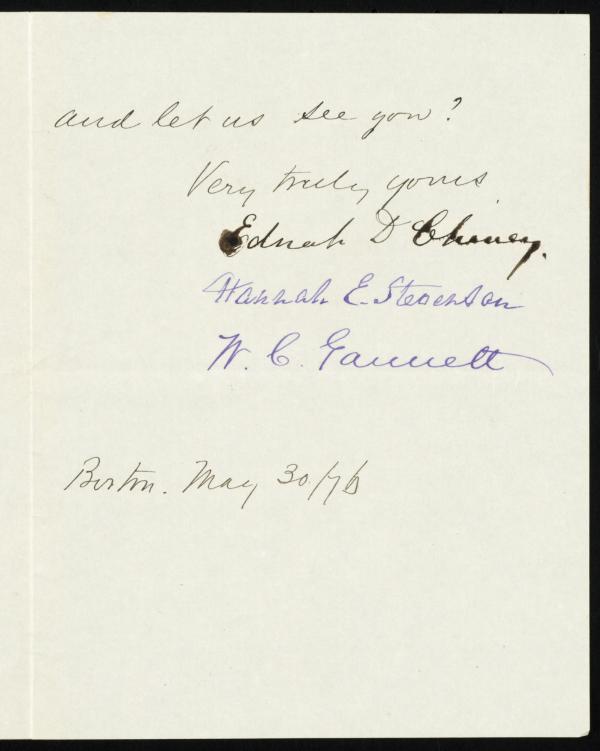 and let us see you?
Very truly yours
Ednah D Cheney.
Hannah E. Stevenson
W. C. Gannett
Boston. May 30/76